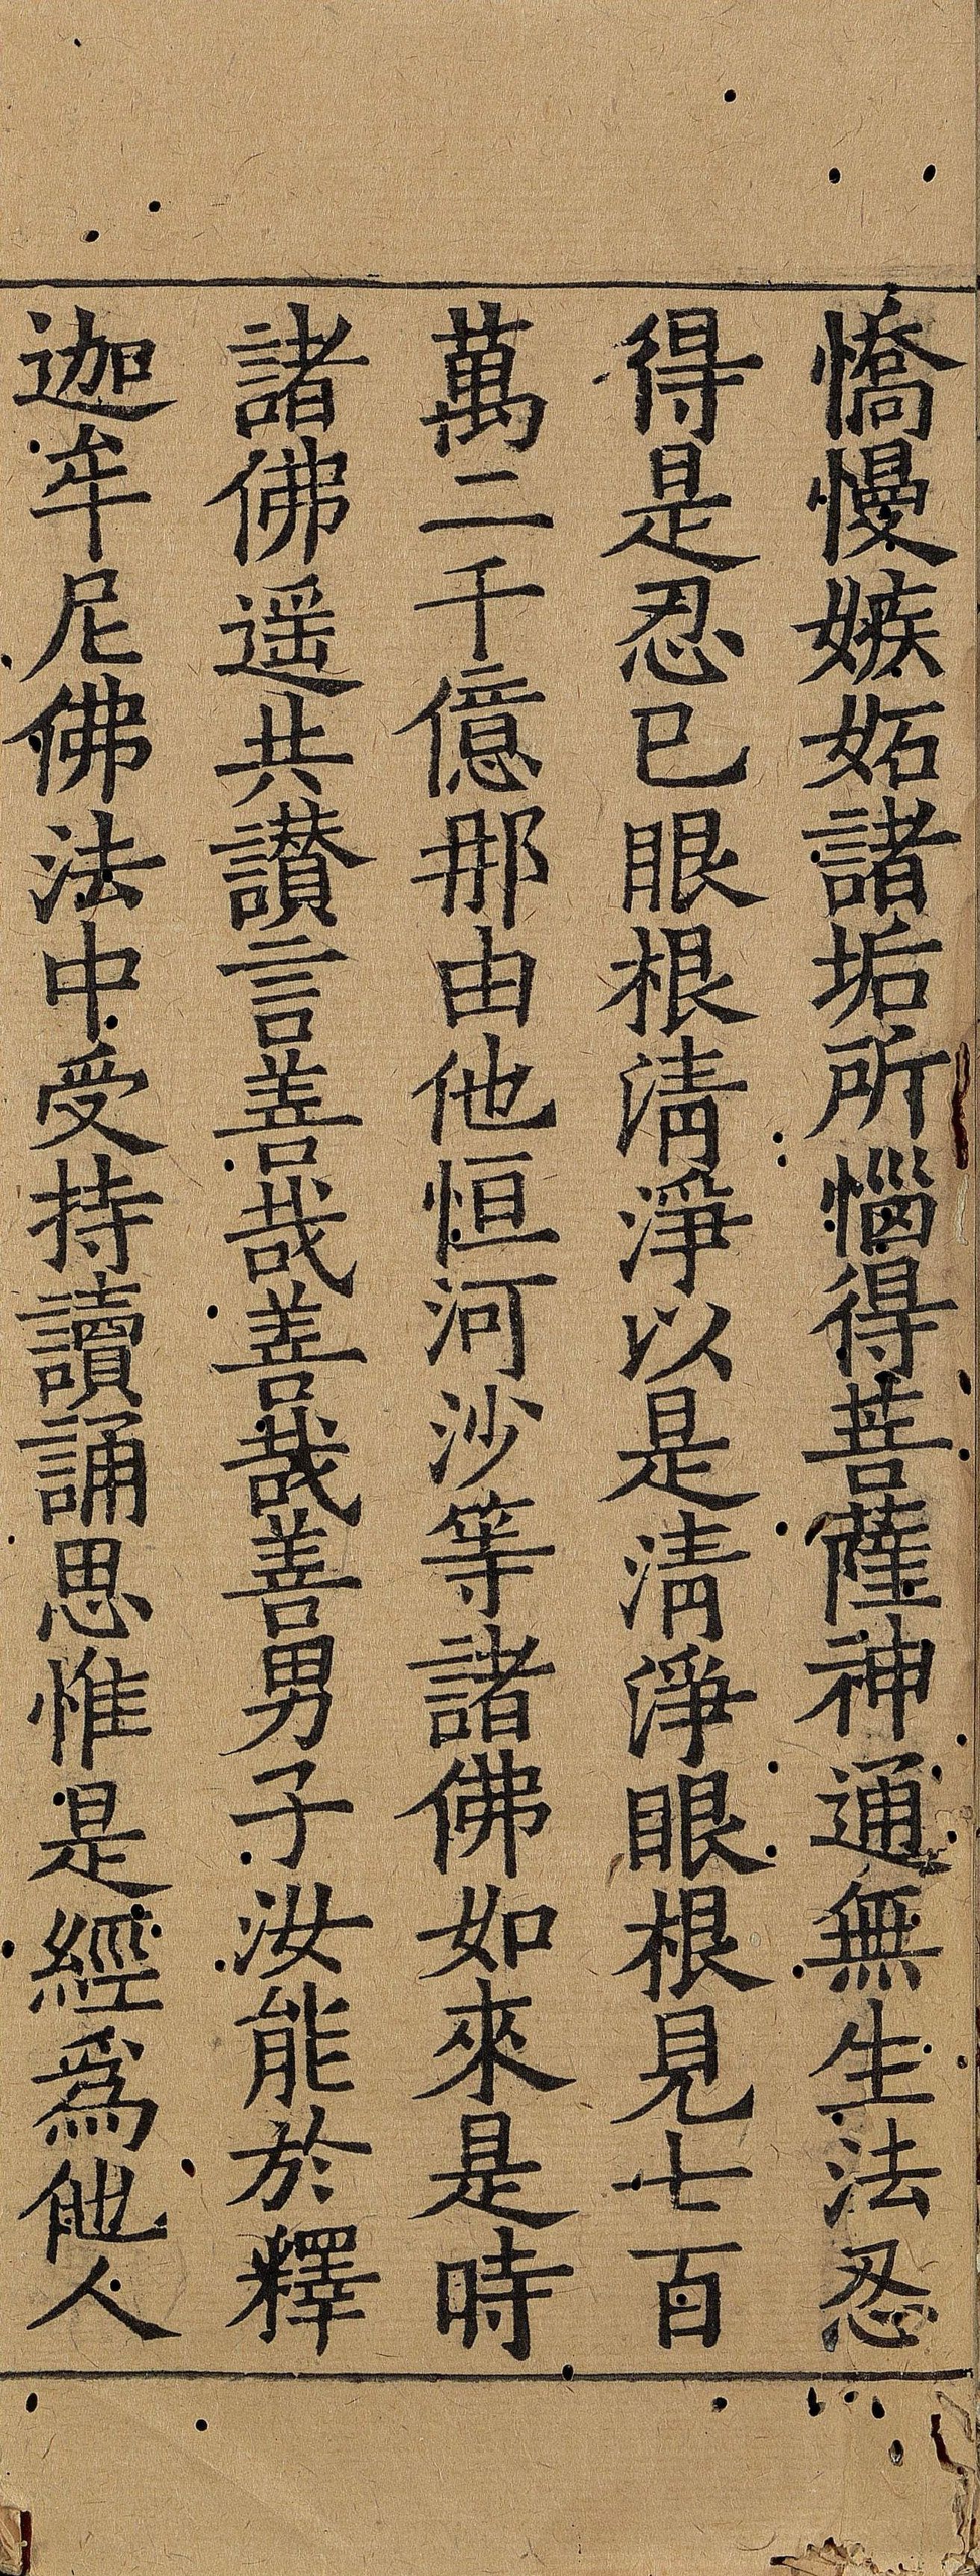 憍慢嫉妬諸垢所惱得菩薩神通無生法忍
得是忍已眼根清淨以是清淨眼根見七百
萬二千億那由他恒河沙等諸佛如來是時
諸佛遥共讃言善哉善哉善男子汝能於釋
迦牟尼佛法中受持讀誦思惟是經爲他人